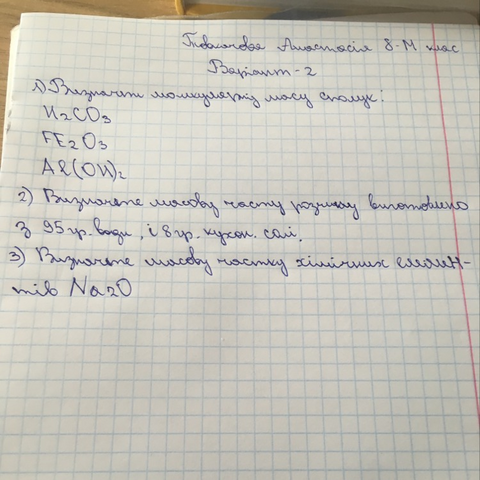 Анастасія 8-М клас
Варіант-2
1) Визначте молекулярну масу сполук:
H2CO3
FE2O3
Al(OH)2
2) Визначте масову частку розчину виготовлено
з 95гр. води, і 8гр. кухон. солі.
3) Визначте масову частку хімічних елемен-
тів Na2O